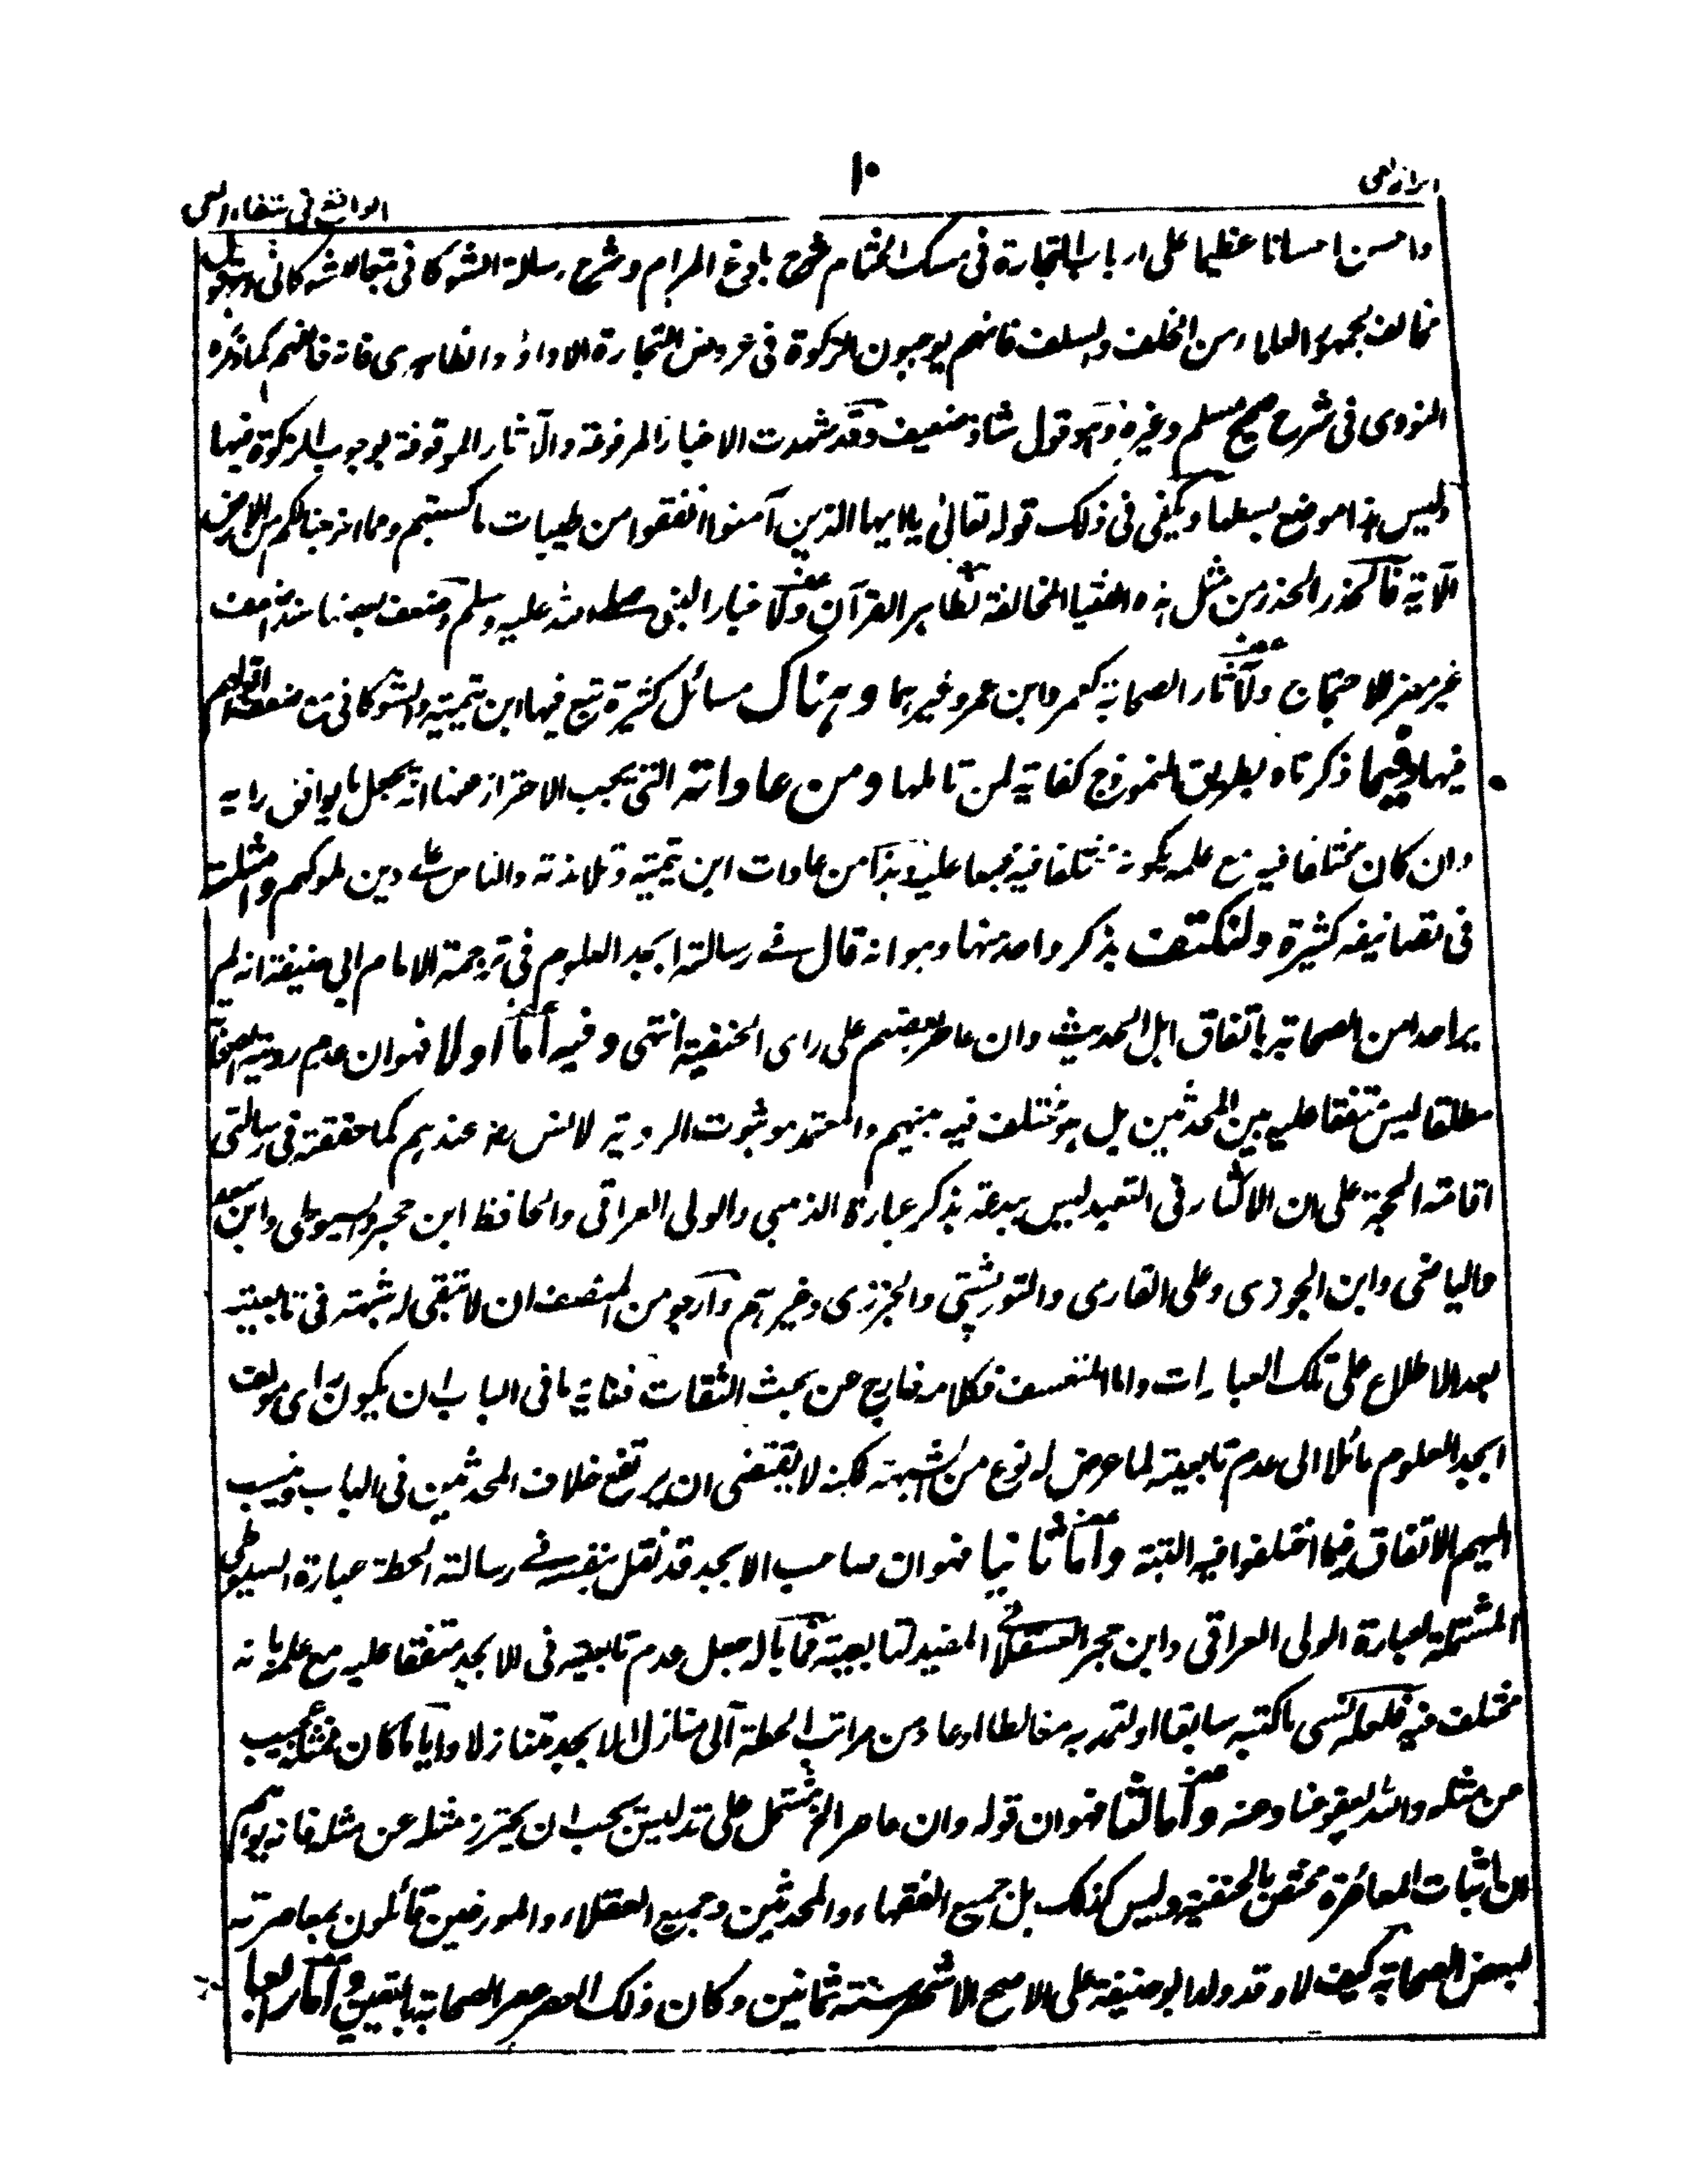 ابراز الغی
١٠
الواقع فی شفاء العی
واحسن احسانا عظیما علی ارباب التجارة فی مسک الختام شرح بلوغ المرام وشرح رسالة الشوکانی تبعا للشوکانی وهو قول
مخالف لجمهور العلماء من الخلف والسلف فانهم یوجبون الزکوة فی عروض التجارة الا داؤد الظاهری فانه خالفهم کما ذکره
النووی فی شرح صحیح مسلم وغیره وهو قول شاذ ضعیف وقد شهدت الاخبار المرفوعة والآثار الموقوفة بوجوب الزکوة فیها
ولیس هذا موضع بسطها ویکفی فی ذلک قوله تعالی یا ایها الذین آمنوا انفقوا من طیبات ما کسبتم ومما اخرجنا لکم من الارض
الآیة فالحذر الحذر من مثل هذه الفتیا المخالفة لظاهر القرآن ولاخبار النبی صلے الله علیه وسلم وضعف بعضها سندا ضعف
غیر مضر للاحتجاج ولآثار الصحابة کعمر وابن عمر وغیرهما وهناک مسائل کثیرة تبع فیها ابن تیمیة والشوکانی مع ضعف اقوالهم
فیها وفیما ذکرناه بطریق النموذج کفایة لمن تاملها ومن عاداته التی یجب الاحتراز عنها انه یجعل ما یوافق رایه
وان کان مختلفا فیه مع علمه بکونه مختلفا فیه مجمعا علیه وهذا من عادات ابن تیمیة وتلامذته والناس علے دین ملوکهم وامثلته
فی تصانیفه کثیرة ولنکتف بذکر واحد منها وهو انه قال فے رسالته ابجد العلوم فی ترجمة الامام ابی حنیفة انه لم
یر احدا من الصحابة باتفاق اهل الحدیث وان عاصر بعضهم علی رای الحنفیة انتهی وفیه أما اولا فهو ان عدم رویة الصحابة
مطلقا لیس متفقا علیه بین المحدثین بل هو مختلف فیه بینهم والمعتمد هو ثبوت الرویة لانس رضـ عندهم کما حققته فی رسالتی
اقامة الحجة علی ان الاکثار فی التعبد لیس ببدعة بذکر عبارة الذهبی والولی العراقی والحافظ ابن حجر والسیوطی وابن سعد
والیافعی وابن الجوزی وعلی القاری والتوربشتی والجزری وغیرهم وارجو من المنصف ان لا تبقی له شبهة فی تابعیته
بعد الاطلاع علی تلک العبارات واما المتعسف فکلامه خارج عن بحث الثقات فغایة ما فی الباب ان یکون رای مولف
ابجد العلوم مائلا الی عدم تابعیته لما عرض له نوع من الشبهة لکنه لا یقتضی ان یرتفع خلاف المحدثین فی الباب وینسب
الیهم الاتفاق فیما اختلفوا فیه البتة وأما ثانیا فهو ان صاحب الابجد قد نقل بنفسه فے رسالته الحطة عبارة السیوطی
المشتملة لعبارة الولی العراقی وابن حجر العسقلانی المفید لتابعیته فما باله جعل عدم تابعیته فی الابجد متفقا علیه مع علمه بانه
مختلف فیه فلعله نسی ما کتبه سابقا او تعمد به مغالطا او عاد من مراتب الحطة الی منازل الابجد متنازلا وایاما کان فمثله عجیب
من مثله والله یعفو عنا وعنه وأما ثالثا فهو ان قوله وان عاصر الخ مشتمل علی تدلیس یجب ان یحترز مثله عن مثله فانه یوهم
ان اثبات المعاصرة مختص بالحنفیة ولیس کذلک بل جمیع الفقهاء والمحدثین وجمیع العقلاء والمورخین قائلون بمعاصرته
لبعض الصحابة کیف لا وقد ولد ابو حنیفة علی الاصح الاشهر سنة ثمانین وکان ذلک العصر عصر الصحابة بالیقین وأما رابعا